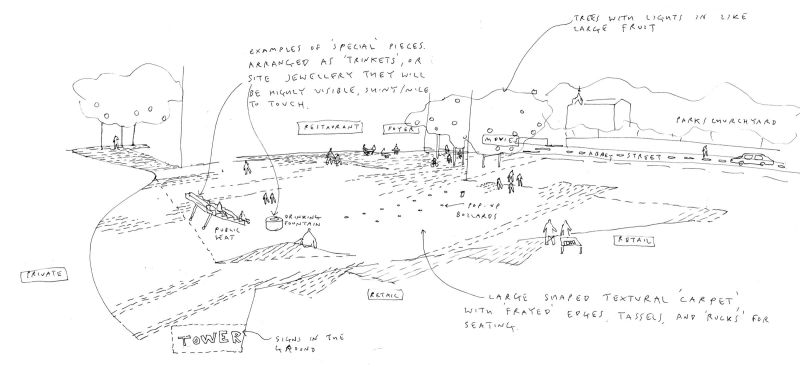 TREES WITH LIGHTS IN LIKE
LARGE FRUIT
EXAMPLES OF 'SPECIAL' PIECES.
ARRANGED AS 'TRINKETS', OR
SITE JEWELLERY THEY WILL
BE HIGHLY VISIBLE, SHINY/NICE
TO TOUCH.
RESTAURANT
FOYER
MOVIES
PARK/CHURCHYARD
ABBEY STREET
PUBLIC
SEAT
DRINKING
FOUNTAIN
POP-UP
BOLLARDS
RETAIL
PRIVATE
RETAIL
LARGE SHAPED TEXTURAL 'CARPET',
WITH 'FRAYED' EDGES, TASSELS, AND 'RUCKS' FOR
SEATING.
TOWER
SIGNS IN THE
GROUND